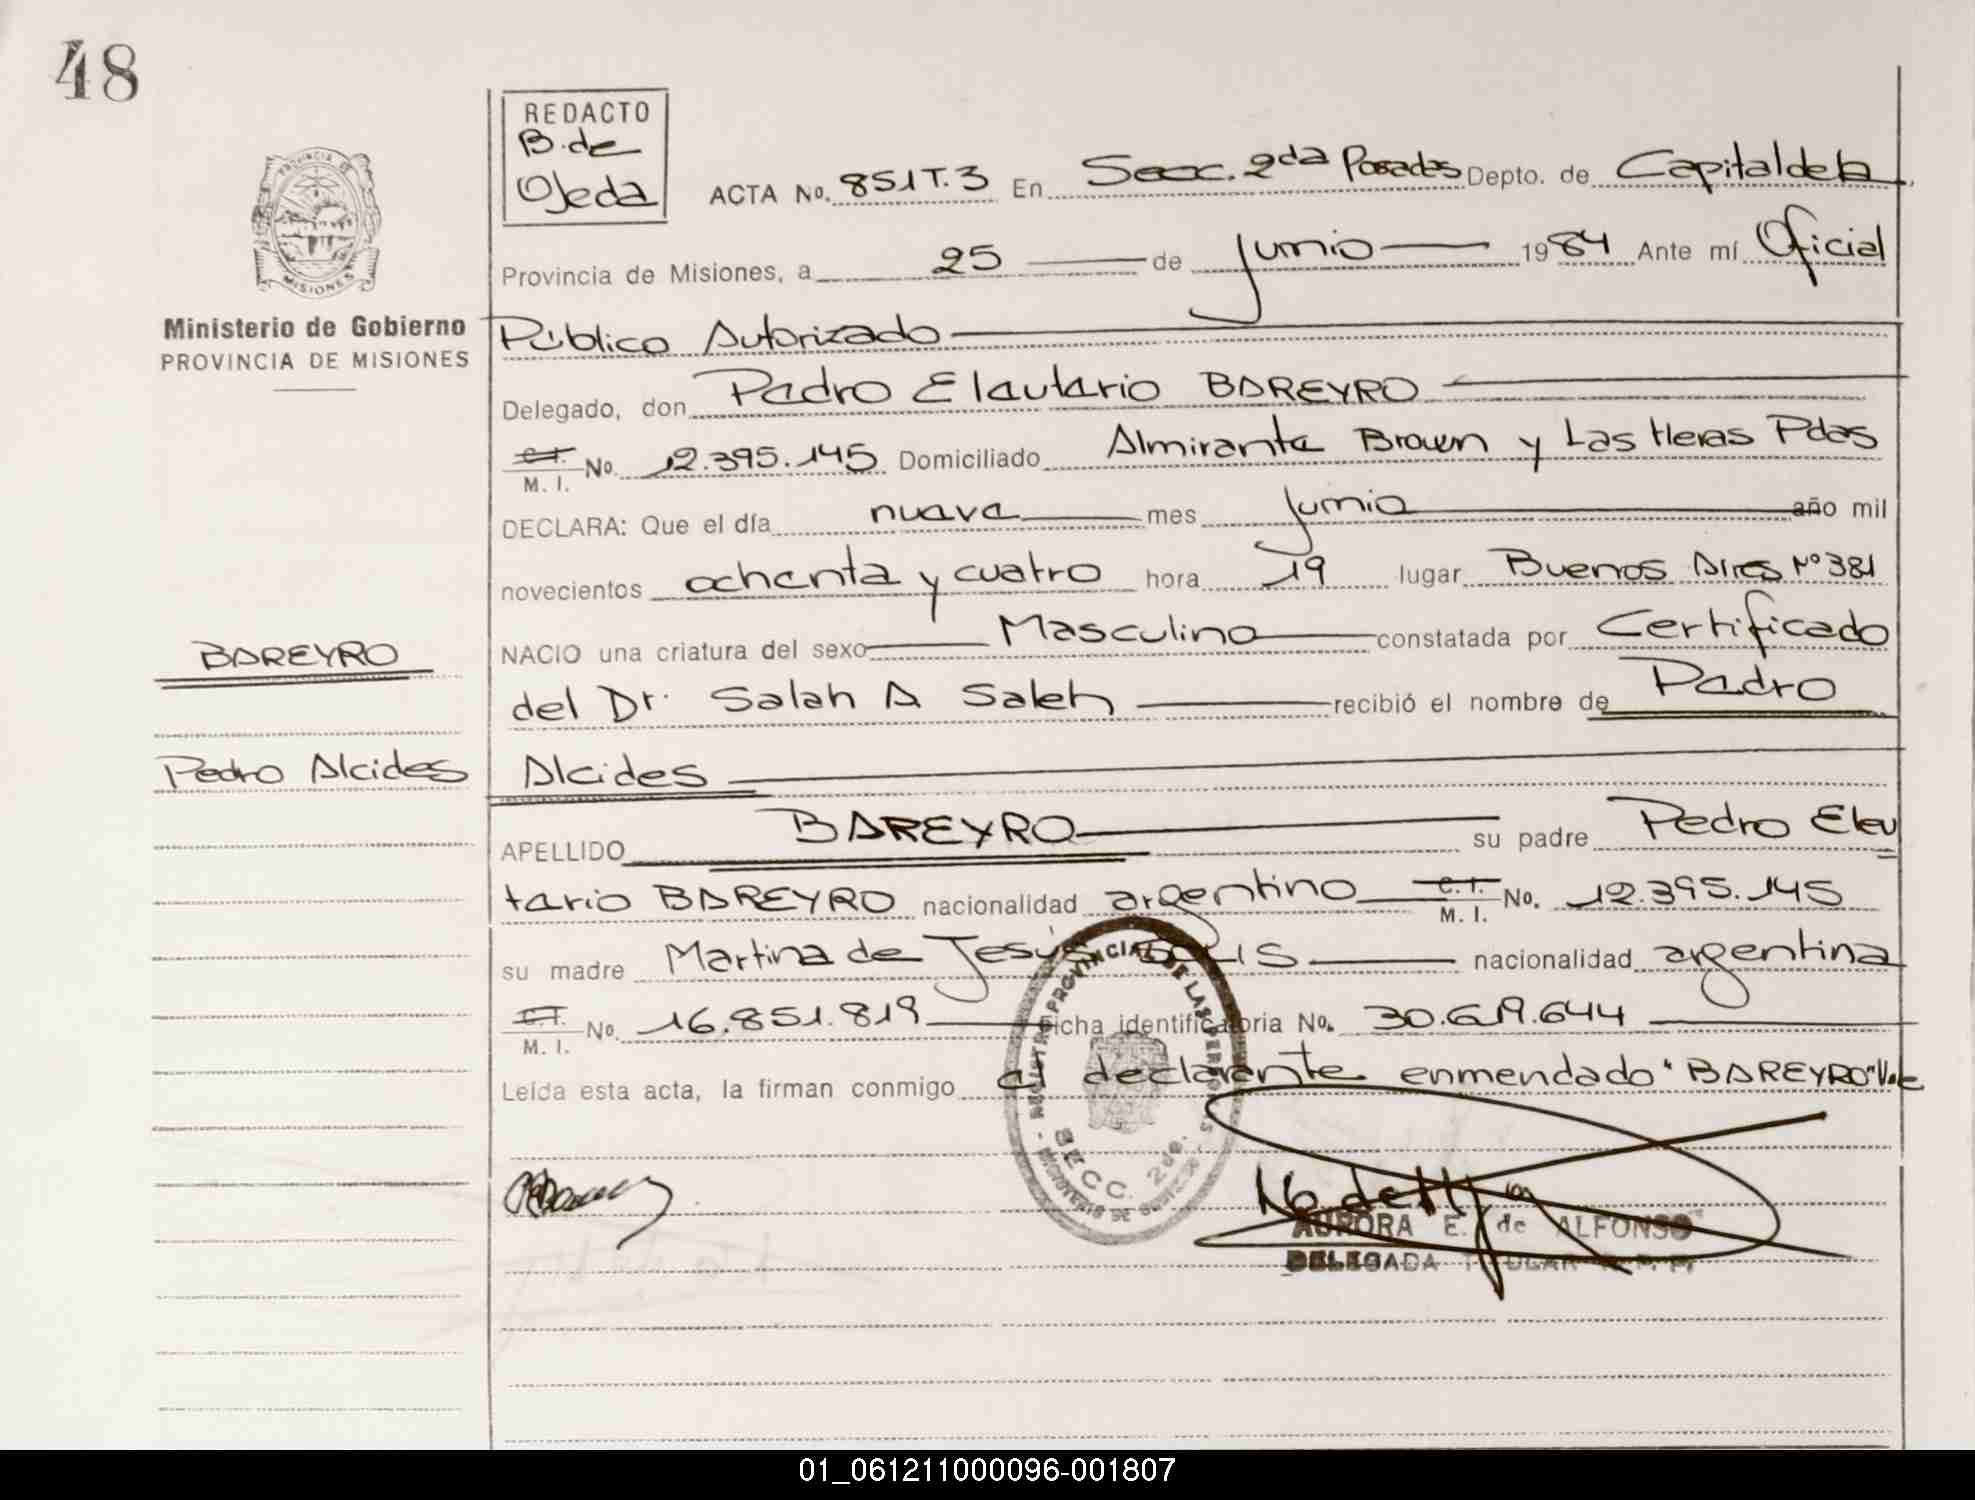 48
REDACTO
B. de
Ojeda
ACTA No. 851 T. 3 En Secc. 2da Posadas Depto. de Capital de la
Provincia de Misiones, a 25 de Junio 1984 Ante mí Oficial
Público Autorizado
Delegado, don Pedro Eleuterio BAREYRO
C.I. M. I. No. 12.395.145 Domiciliado Almirante Brown y Las Heras Pdas
DECLARA: Que el día nueve mes Junio año mil
novecientos ochenta y cuatro hora 19 lugar Buenos Aires Nº 381
NACIO una criatura del sexo Masculino constatada por Certificado
del Dr. Salah A Saleh recibió el nombre de Pedro
Alcides
APELLIDO BAREYRO su padre Pedro Eleu
terio BAREYRO nacionalidad argentino C.I. M. I. No. 12.395.145
su madre Martina de Jesús nacionalidad argentina
C.I. M. I. No. 16.851.819 Ficha identificatoria No. 30.619.644
Leída esta acta, la firman conmigo el declarante enmendado "BAREYRO" Vale
PROVINCIA DE
MISIONES
Ministerio de Gobierno
PROVINCIA DE MISIONES
BAREYRO
Pedro Alcides
REGISTRO PROVINCIAL DE LAS PERSONAS
SECC. 2da.
AURORA E. de ALFONSO
DELEGADA TITULAR R. P. P.
01_061211000096-001807